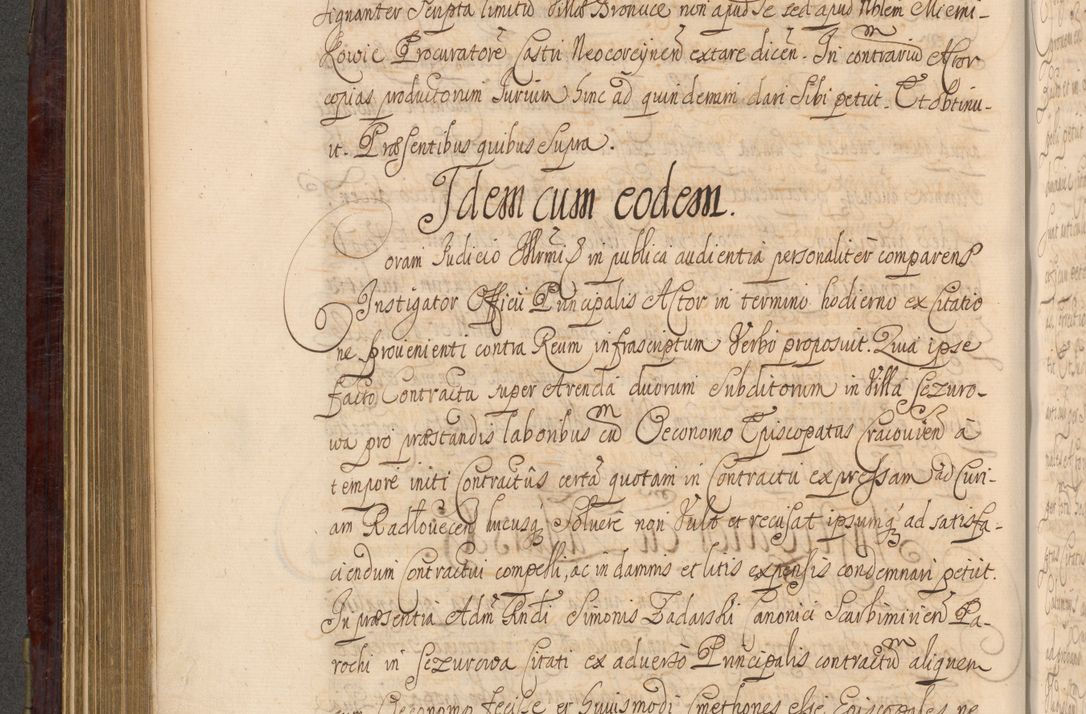 signanter Scripta limitũ Villæ Bronuce non apud se sed apud Nblem Miemi-
Kowic Procuratorē Castri Neocorcynen̄ extare dicen̄. In contrariũ Actor
copias productorum Iurium hinc ad quindenam dari Sibi petiit. Et obtinu-
it. Præsentibus quibus Supra.
Idem cum eodem.
Coram Iudicio Illrmi in publica audientia personalitēr comparens
Instigator Officii Principalis Actor in termino hodierno ex Citatio
ne provenienti contra Reum infrascriptum Verbo proposuit. Quia ipse
facto Contractu super Arenda duorum Subditorum in Villa Sezuro-
wa pro præstandis laboribus cũ Oeconomo Episcopatus Cracovien̄ à
tempore initi Contractûs certã quotam in Contractu expressam ad Curi-
am Radłovecen̄ hucusq́ Solvere non Vult et recusat ipsumq́ ad satisfa-
ciendum Contractui compelli, ac in damnis et litis expensis condemnari petiit.
In præsentia Adm̄ Rndi Simonis Zadarski Canonici Scarbimirien̄ Pa-
rochi in Sezurowa Citati ex adverso Principalis contractũ aliquem
cum Oeconomo fecisse et huiusmodi Cmethones esse Episcopales ne